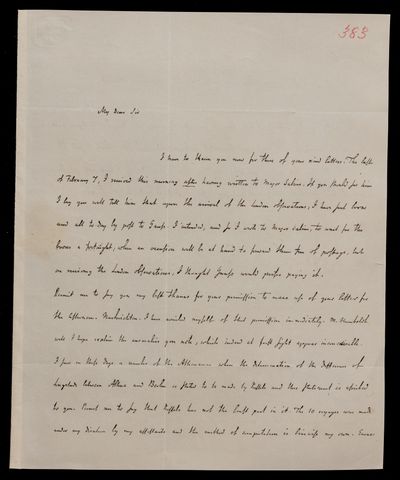 383
My Dear Sir
I have to thank you now for three of your kind letters. The last
of February 7, I received this morning after having written to Major Sabine. If you should see him
I beg you will tell him that upon the arrival of the London Observations, I have just
and all to day by post to Gauss. I intended, and so I wrote to Major Sabine, to wait for the
a fortnight, when an occasion will be at hand to forward them free of postage, but
on receiving the London Observations, I thought Gauss would prefer paying it.
Permit me to pay you my best thanks for your permission to make use of your letters for
the Astronom. Nachrichten. I have availed myself of that permission immediately. M. Humboldt
will I hope explain the you note, which indeed at first sight appears inconceivable.
I saw in these days a number of the Athenaeum where the Determination of the Difference of
Longitude between Altona and is stated to be made by and this statement is ascribed
to you. Permit me to say that has not the least part in it. The 10 voyages were made
under my direction by my assistants and the method of computation is likewise my own.